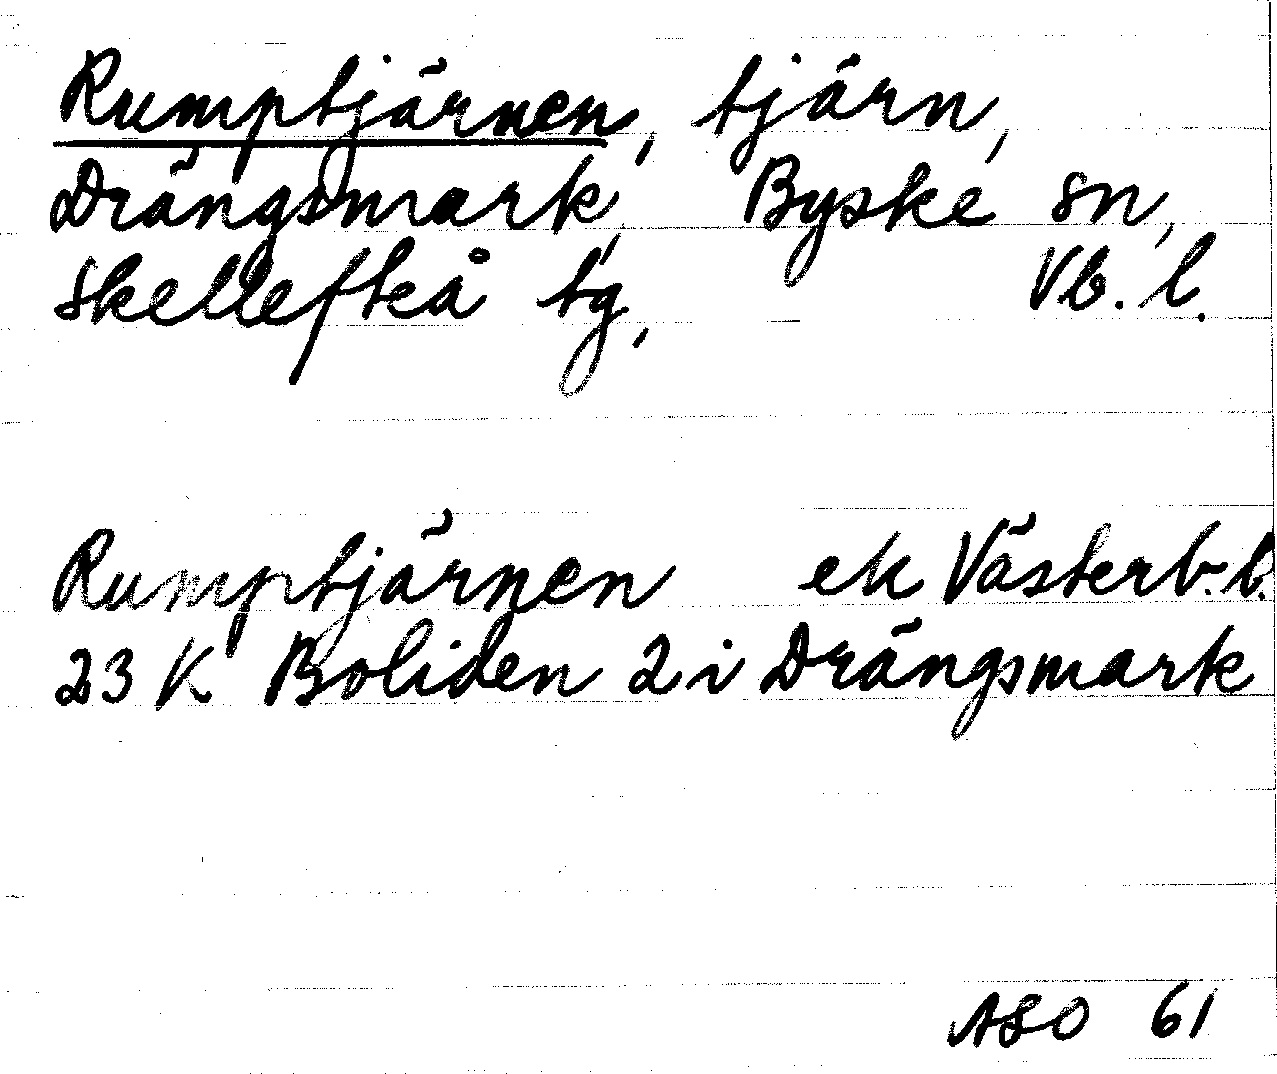 Rumptjärnen, tjärn,
Drängsmark, Byske sn,
Skellefteå tg, Vb. l.
Rumptjärnen ek Västerb. l.
23 K Boliden 2 i Drängsmark
ASO 61